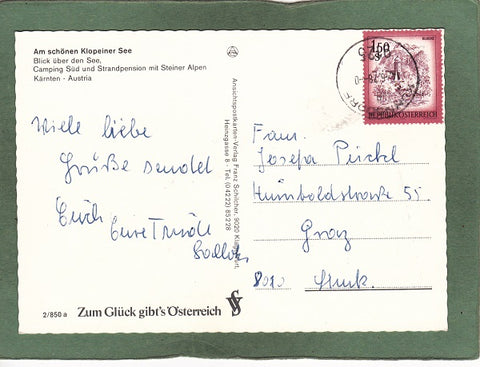 Am schönen Klopeiner See
Blick über den See,
Camping Süd und Strandpension mit Steiner Alpen
Kärnten - Austria
Viele liebe
Grüße sendet
Euch
Eure
2/850 a Zum Glück gibt's Österreich
Ansichtspostkarten-Verlag Franz Schilcher, 9020 Klagenfurt,
1.50
REPUBLIK ÖSTERREICH
Frau
Josefa
Humboldstraße 55
Graz
8010